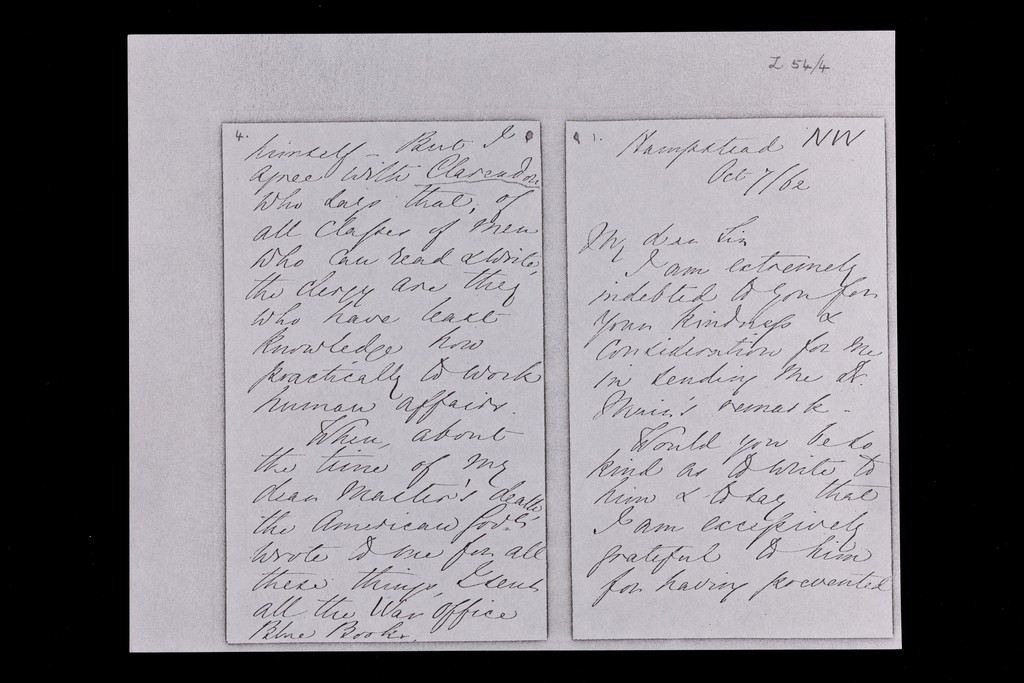 L 54/4
4.
himself – But I
agree with Clarendon
who says that, of
all classes of men
who can read & write,
the clergy are they
who have least
knowledge how
practically to work
human affairs.
When, about
the time of my
dear Master's death,
the American Govt
wrote to me for all
these things, I sent
all the War Office
Blue Books.
1.
Hampstead NW
Oct 7/62
My dear Sir
I am extremely
indebted to you for
your kindness &
consideration for me
in sending me Dr.
remark –
Would you be so
kind as to write to
him & to say that
I am excessively
grateful to him
for having prevented